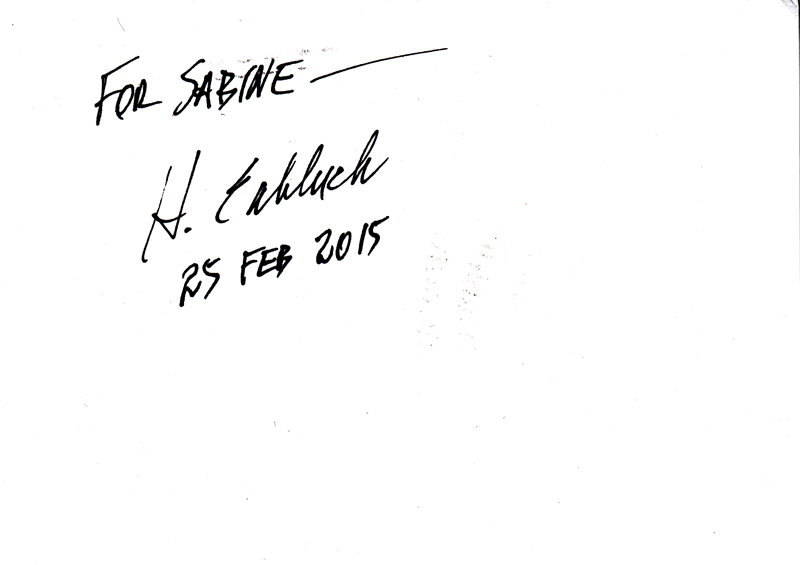 FOR SABINE —
H.
25 FEB 2015